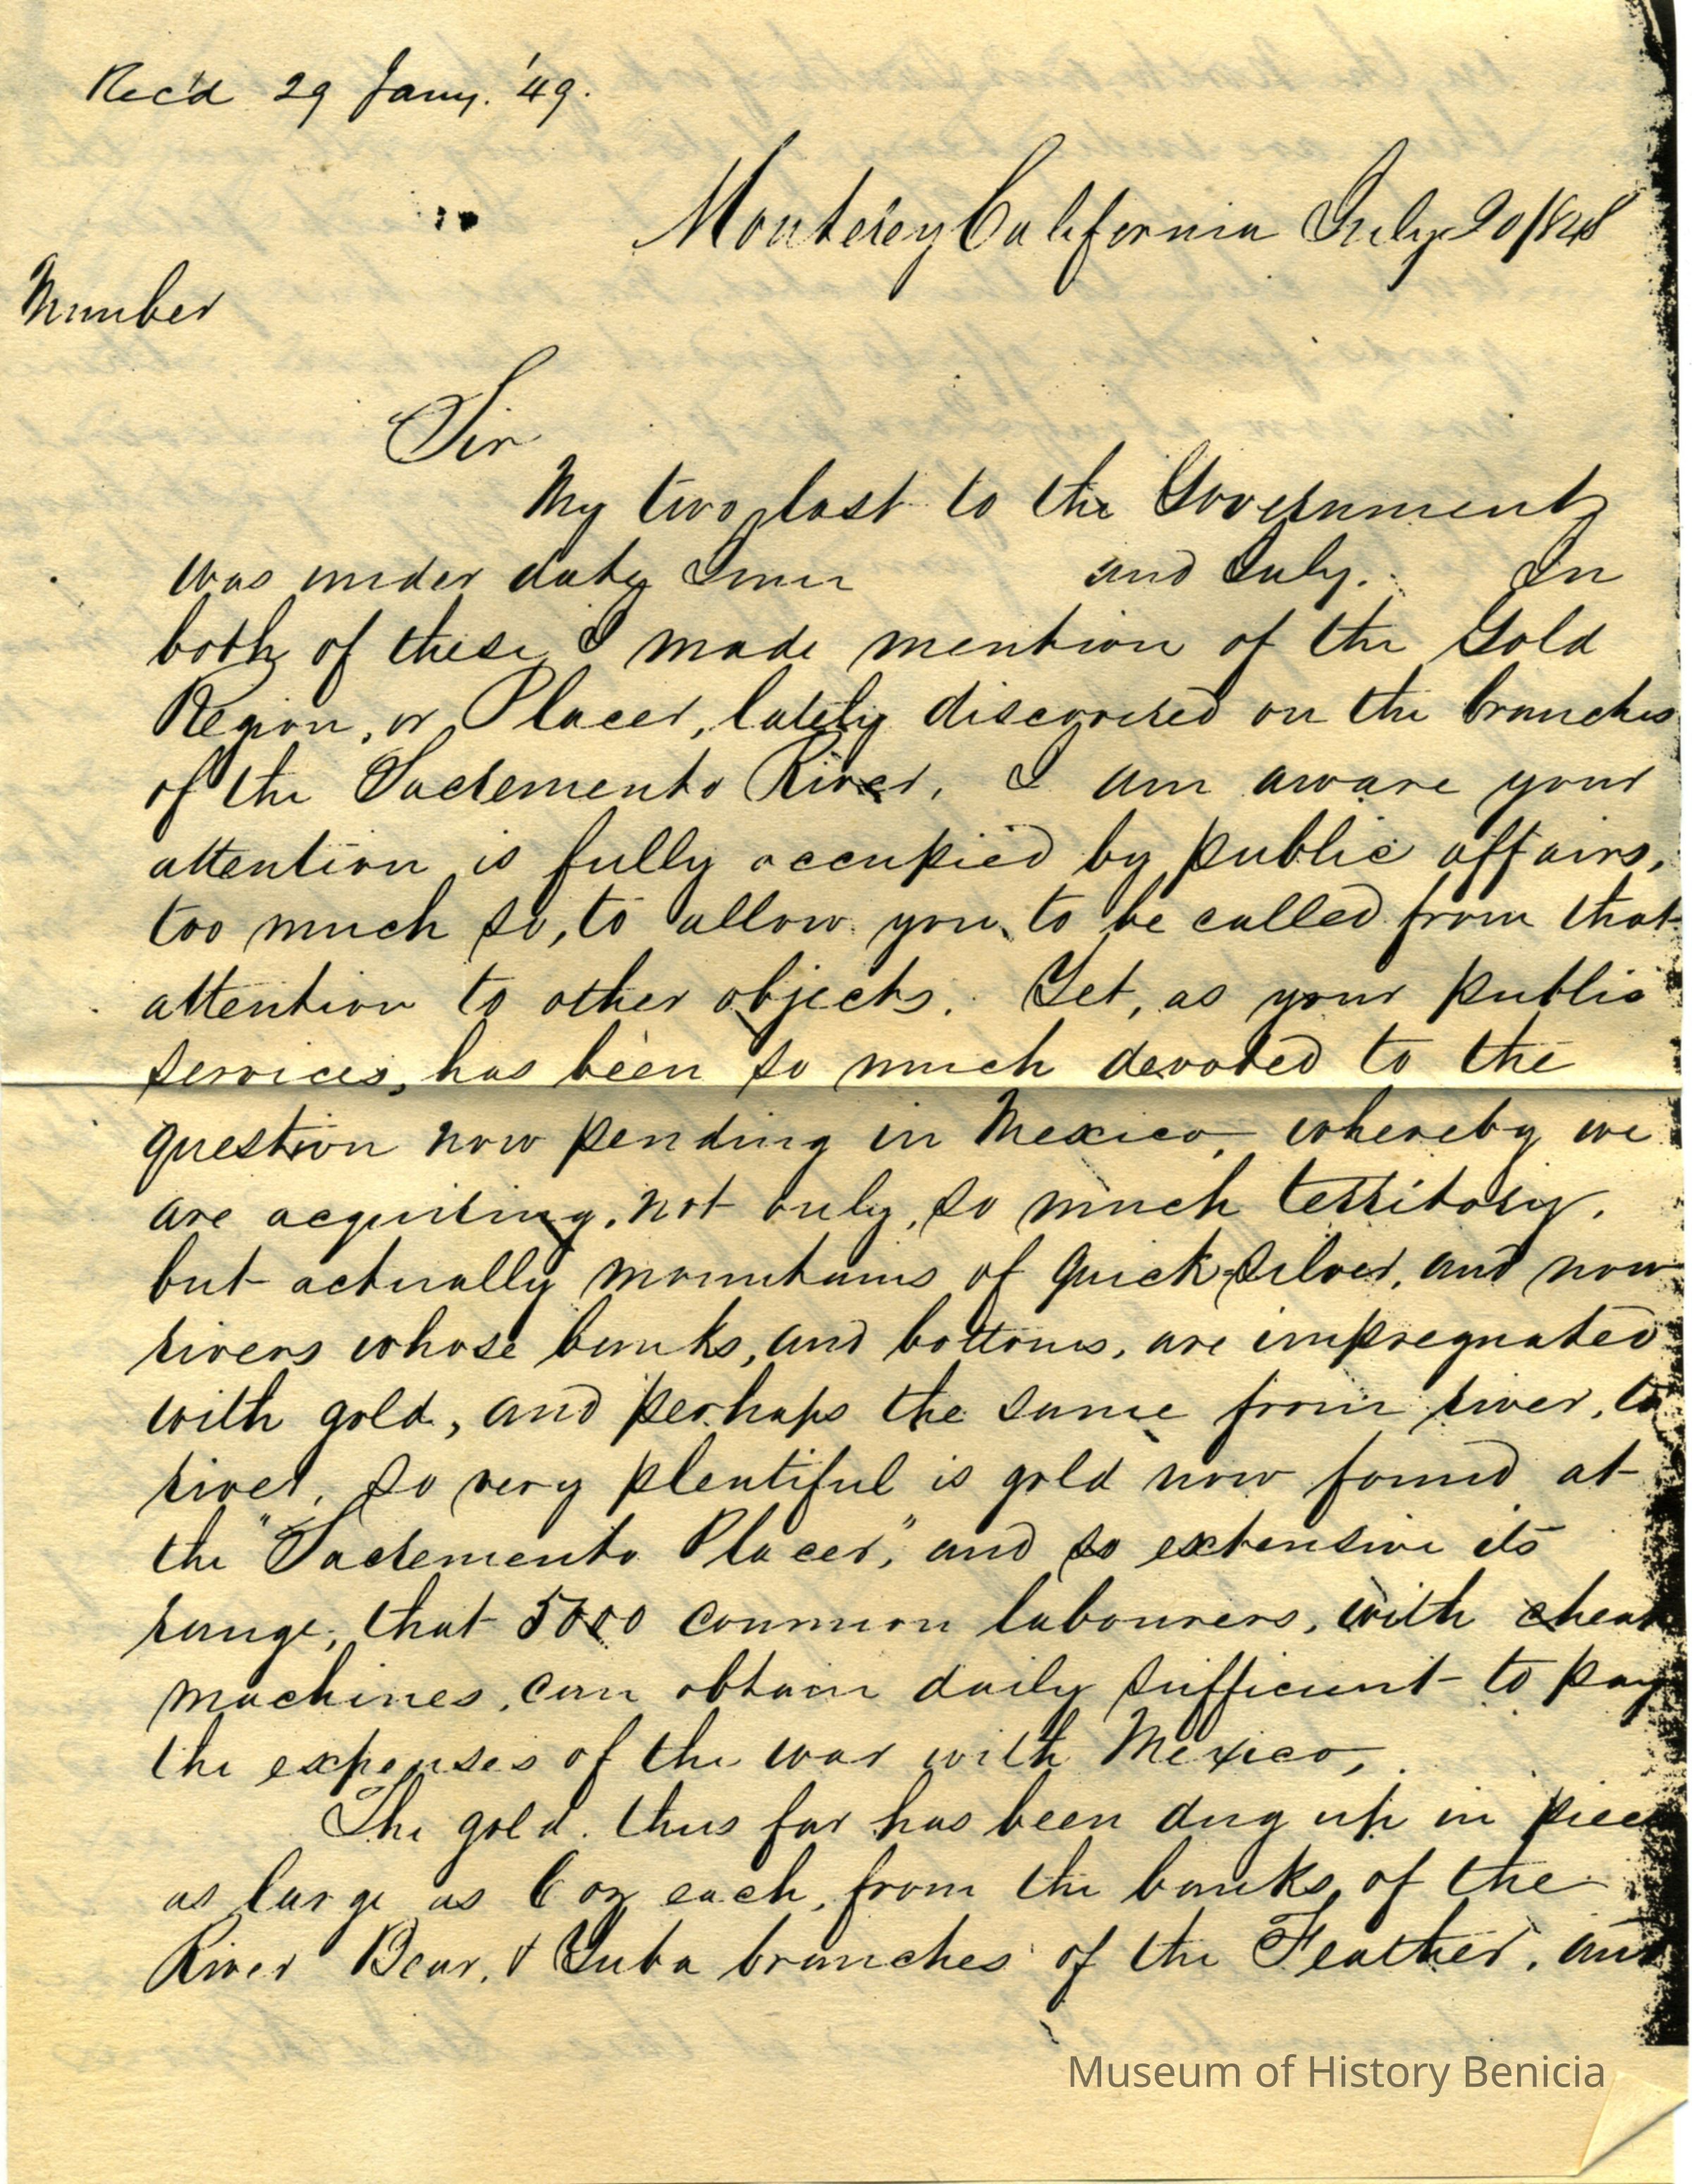 Rec'd 29 Jany. '49.
Monterey California July 20/1848
Number
Sir
My two last to the Government
was under date June and July. In
both of these I made mention of the Gold
Region, or Placer, lately discovered on the branches
of the Sacremento River. I am aware your
attention is fully occupied by public affairs,
too much so, to allow you, to be called from that
attention to other objects. Yet, as your public
services, has been so much devoted to the
question now pending in Mexico, whereby we
are acquiring, not only, so much territory,
but actually mountains of Quick-Silver, and now
rivers whose banks, and bottoms, are impregnated
with gold, and perhaps the same from river, to
river, so very plentiful is gold now found at
the "Sacremento Placer," and so extensive its
range, that 5000 common labourers, with cheap
machines, can obtain daily sufficient to pay
the expenses of the war with Mexico,
The gold. thus far has been dug up in piec
as large as 6 oz each, from the banks, of the
River Bear, & Yuba branches of the Feather, and
Museum of History Benicia